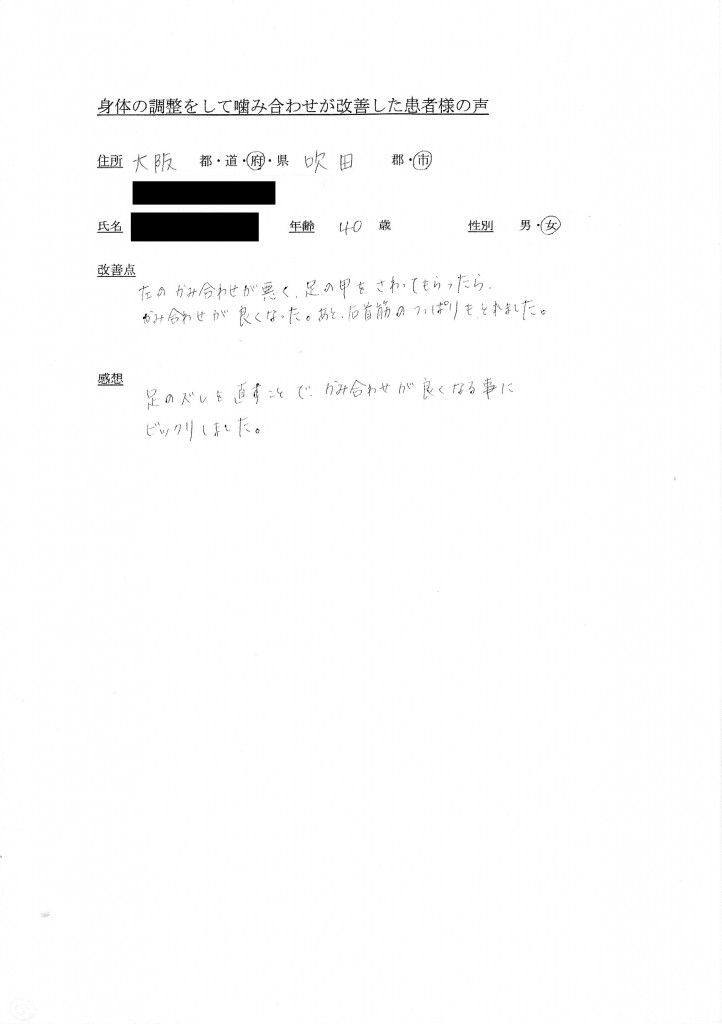 身体の調整をして噛み合わせが改善した患者様の声
住所 大阪 都・道・府・県 吹田 郡・市
氏名 年齢 40 歳 性別 男・女
改善点
左のかみ合わせが悪く、足の甲をさわってもらったら、
かみ合わせが良くなった。あと、右首筋のつっぱりもとれました。
感想
足のズレを直すことで、かみ合わせが良くなる事に
ビックリしました。